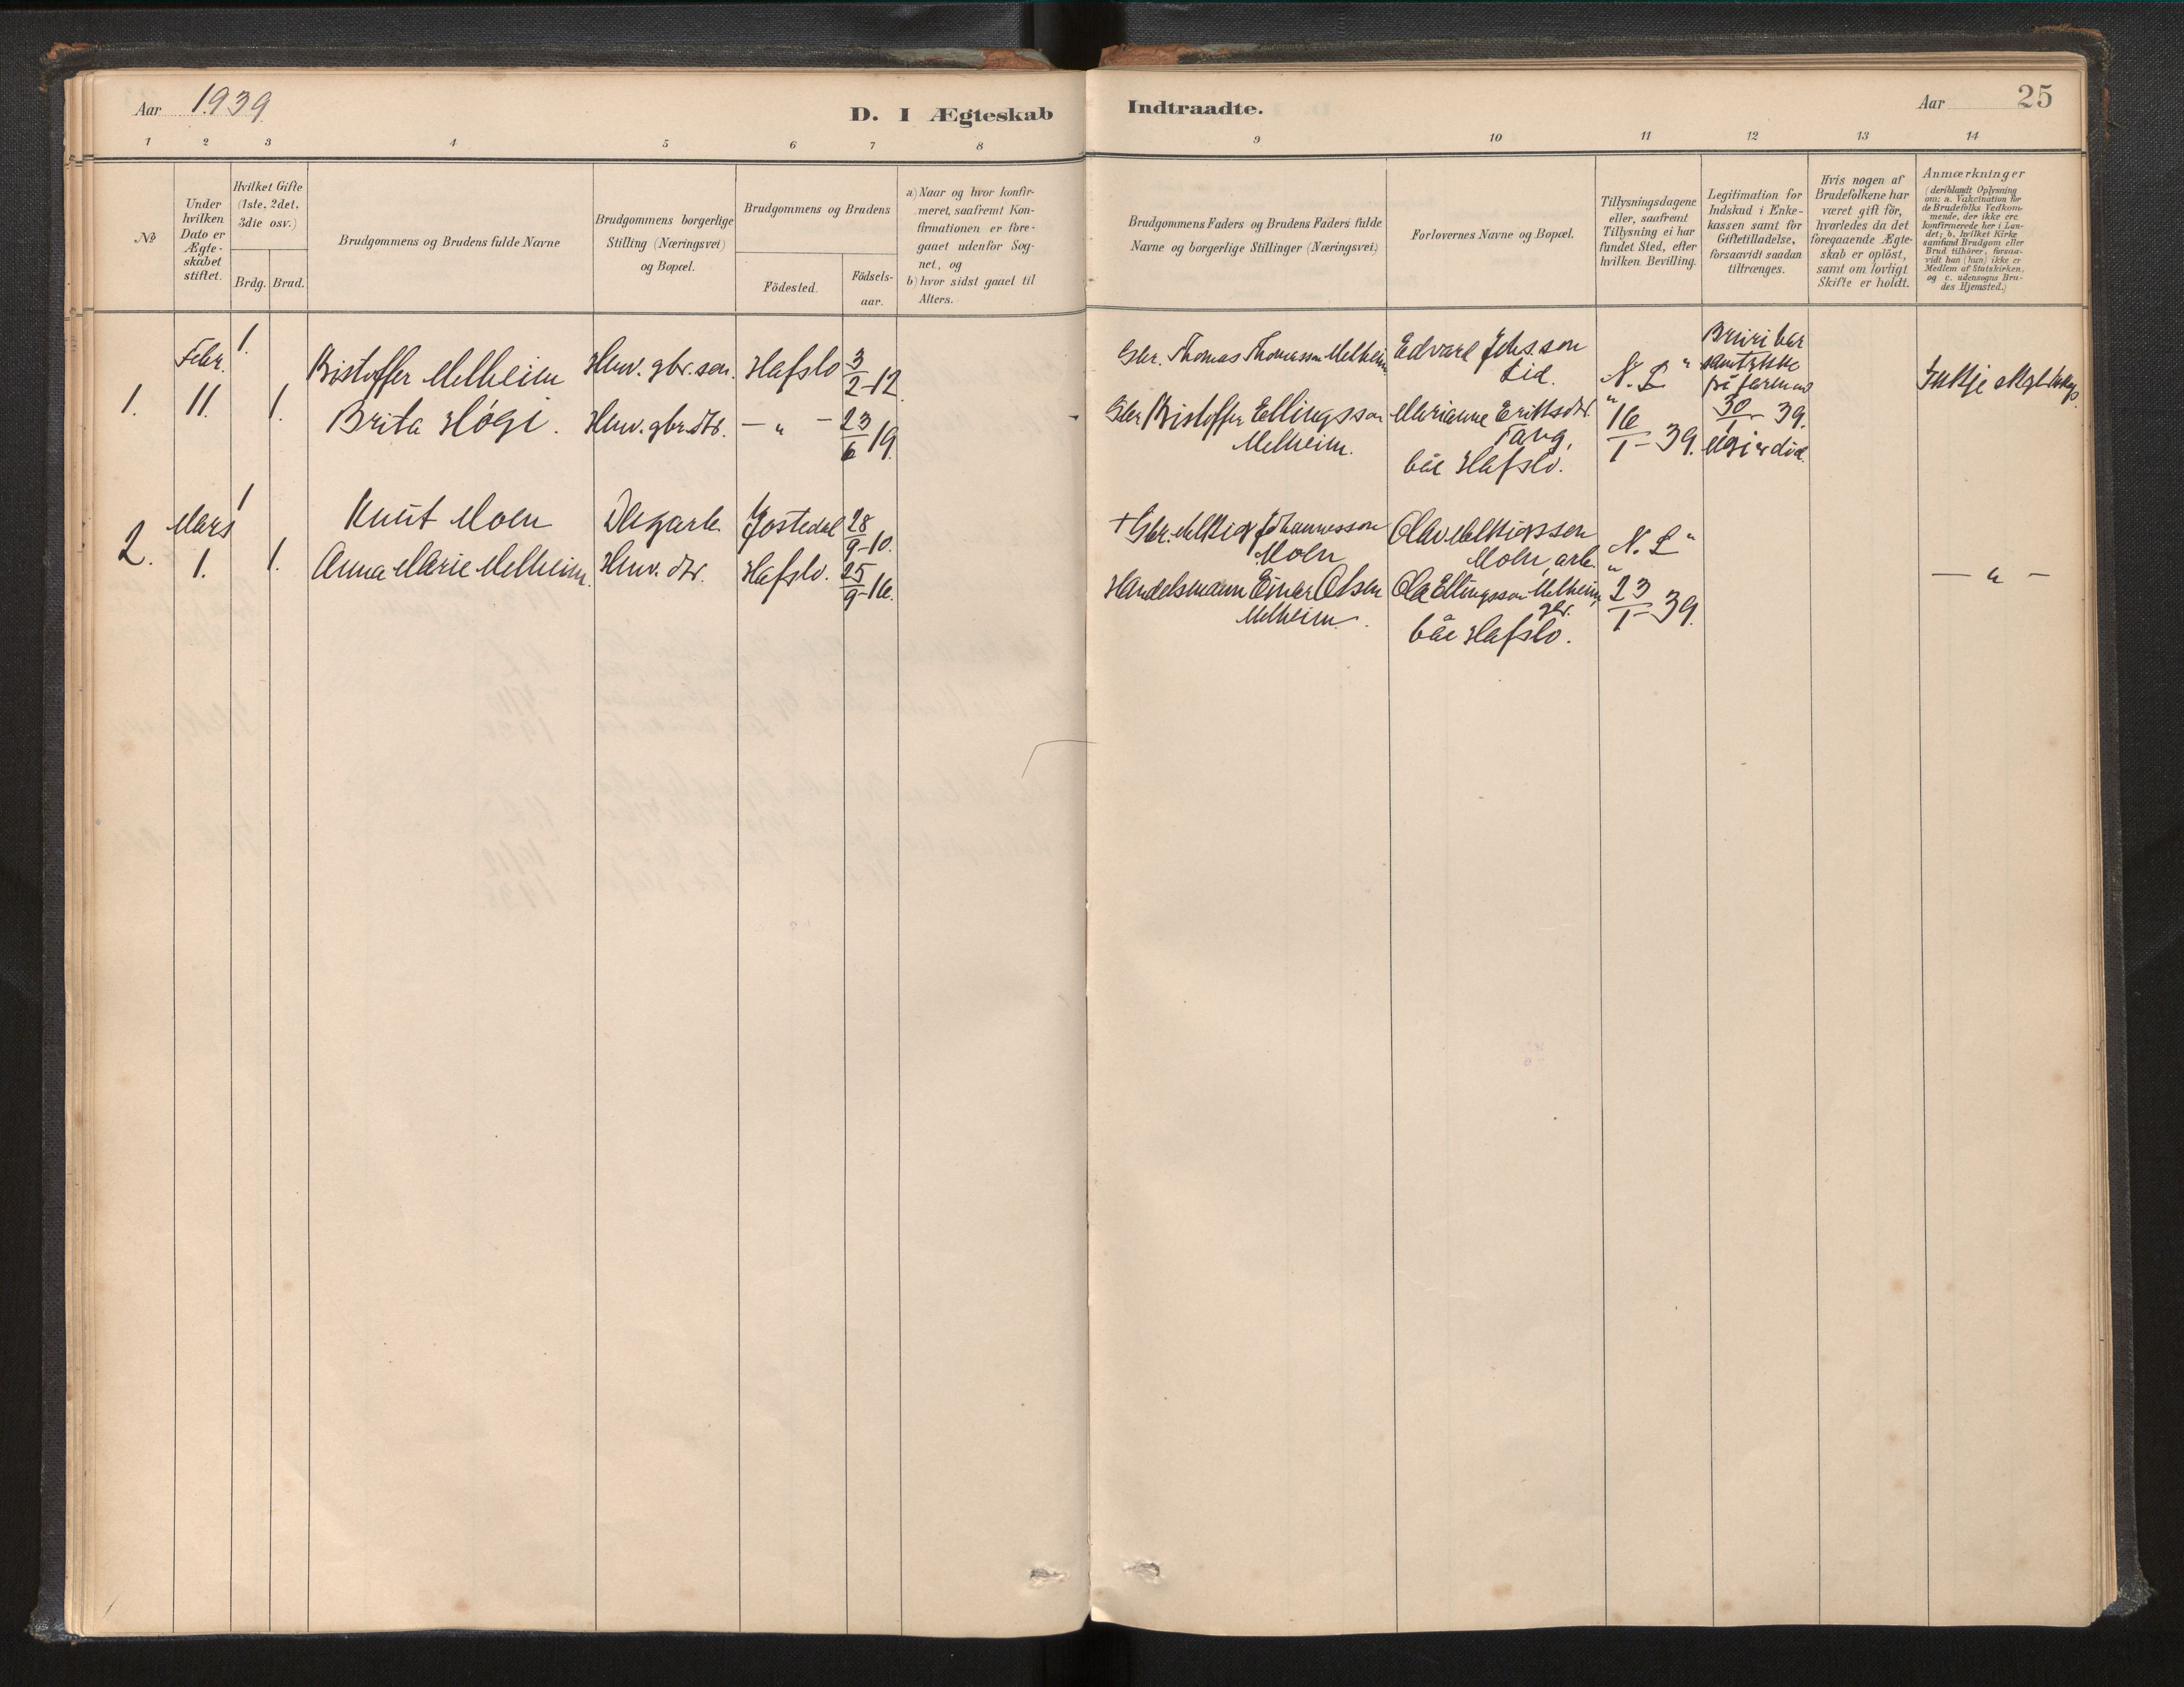 Aar 1939
D. I Ægteskab
Indtraadte.
Aar
25
1 2 3 4 5 6 7 8
9 10 11 12 13 14
№
Under hvilken Dato er Ægte-skabet stiftet.
Hvilket Gifte (1ste, 2det, 3die osv.)
Brdg. Brud.
Brudgommens og Brudens fulde Navne
Brudgommens borgerlige
Stilling (Næringsvei)
og Bopæl.
Brudgommens og Brudens
Födested.
Födsels-
aar.
a) Naar og hvor konfir-
meret, saafremt Kon-
firmationen er fore-
gaaet udenfor Sog-
net, og
b) hvor sidst gaaet til
Alters.
Brudgommens Faders og Brudens Faders fulde
Navne og borgerlige Stillinger (Næringsvei)
Forlovernes Navne og Bopæl.
Tillysningsdagene
eller, saafremt
Tillysning ei har
fundet Sted, efter
hvilken Bevilling.
Legitimation for
Indskud i Enke-
kassen samt for
Giftetilladelse,
forsaavidt saadan
tiltrænges.
Hvis nogen af
Brudefolkene har
været gift för,
hvorledes da det
foregaaende Ægte-
skab er oplöst,
samt om lovligt
Skifte er holdt.
Anmærkninger
(deriblandt Oplysning
om: a. Vakcination for
de Brudefolks Vedkom-
mende, der ikke ere
konfirmerede her i Lan-
det; b. hvilket Kirke
samfund Brudgom eller
Brud tilhörer, forsaa-
vidt han (hun) ikke er
Medlem af Statskirken,
og c. udensogns Bru-
des Hjemsted.)
1. Febr. 11. 1. 1.
Kristoffer Melheim Hmv. gbr. son. Hafslo 3/2-12
Brita Høgi. Hmv. gbr. dtr. - " - 23/6 19.
Gbr. Thomas Thomasson Melheim
Gbr Kristoffer Ellingsson
Melheim.
Edvard Johs.son
Lid.
Marianne Eriksdtr.
Tang,
båe Hafslo.
"N. L"
16/1-39.
Bruri har
samtykke
frå
30/1-39.
2. Mars 1. 1 1.
Knut Moen Jostedal 28/9-10.
Anna Marie Melheim. Hmv. dtr. Hafslo. 25/9-16.
+ Gbr. Johannesson
Moen
Handelsmann Einar Olsen
Melheim.
Olav
Moen, arb.
Ola Ellingsson Melheim,
gbr.
båe Hafslo.
"N. L"
23/1-39.
- " -